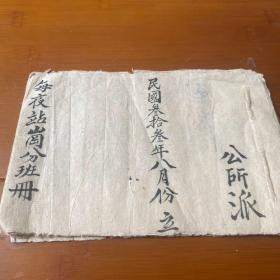 公所派
民國叁拾叁年八月份立
每夜站崗分班冊